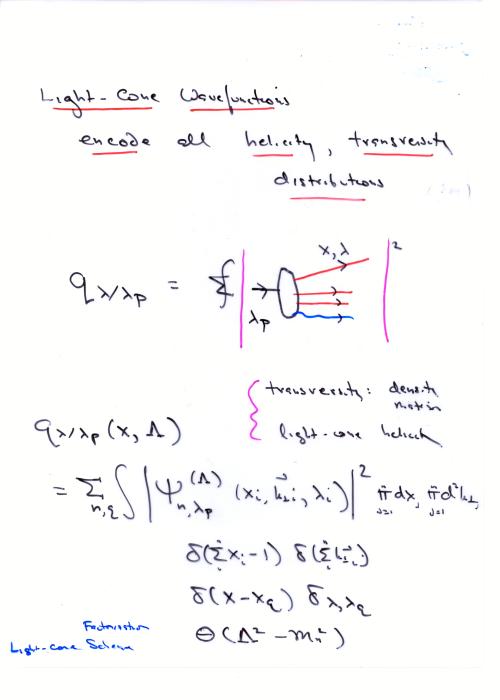 Light-Cone Wavefunctions
encode all helicity, transversity
distributions
x, λ
q_{λ/λp} = ∑∫ | λp |²
{ transversity: density matrix
light-cone helicity
q_{λ/λp} (x, Λ)
= ∑_{n,q} ∫ | ψ^{(Λ)}_{n,λp} (x_i, k⃗_{⊥i}, λ_i) |² π_{j=1} dx_j π_{j=1} d²k_{⊥j}
δ(∑x_i − 1) δ(∑k⃗_{⊥i})
δ(x − x_q) δ_{λ,λq}
Factorization
Light-cone Scheme
Θ(Λ² − m_n²)